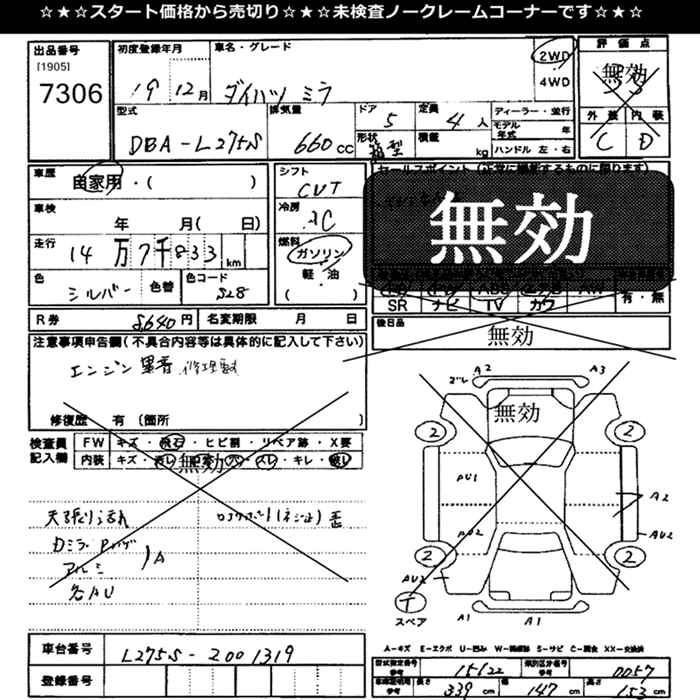 ☆★☆★スタート価格から売切り☆★☆★未検査ノークレームコーナーです☆★☆
出品番号 初度登録年月 車名・グレード 2WD 評価点
[1905] 無効
7306 19 12月 ダイハツ ミラ 4WD
型式 排気量 ドア 定員 ディーラー・並行 外装 内装
5 4人 モデル年式 年
DBA-L275S 660CC 形状 箱型 積載 kg ハンドル 左・右 C D
車歴 自家用・( ) シフト セールスポイント(正常に撮影するものに限ります)
CVT
車検 年 月( 日) 冷房 無効
AC
走行 14万7千833km 燃料 ガソリン
色 シルバー 色替 色コード S28 軽・油
( ) SR ナビ TV カワ AW 有・無
R券 8640円 名変期限 月 日 後日品
注意事項申告欄(不具合内容等は具体的に記入して下さい) 無効
エンジン異音
修復歴 有(箇所 )
検査員記入欄 FW キズ・飛石・ヒビ割・リペア跡・X要
内装 キズ・ スレ・キレ
無効
天張り汚れ
アルミ
A
各AU
A2 A3
無効
2 2
AU1 A2
AU2 AU2
2 2
AU2
T
スペア A1 A1
A-キズ E-エクボ U-凹み W-補修跡 S-サビ C-腐食 XX-交換済
車台番号 L275S-2001319
登録番号
型式指定番号 参考 15122 類別区分番号 参考 0057
車検証明用 参考 長さ 339cm 幅 147cm 高さ 153cm